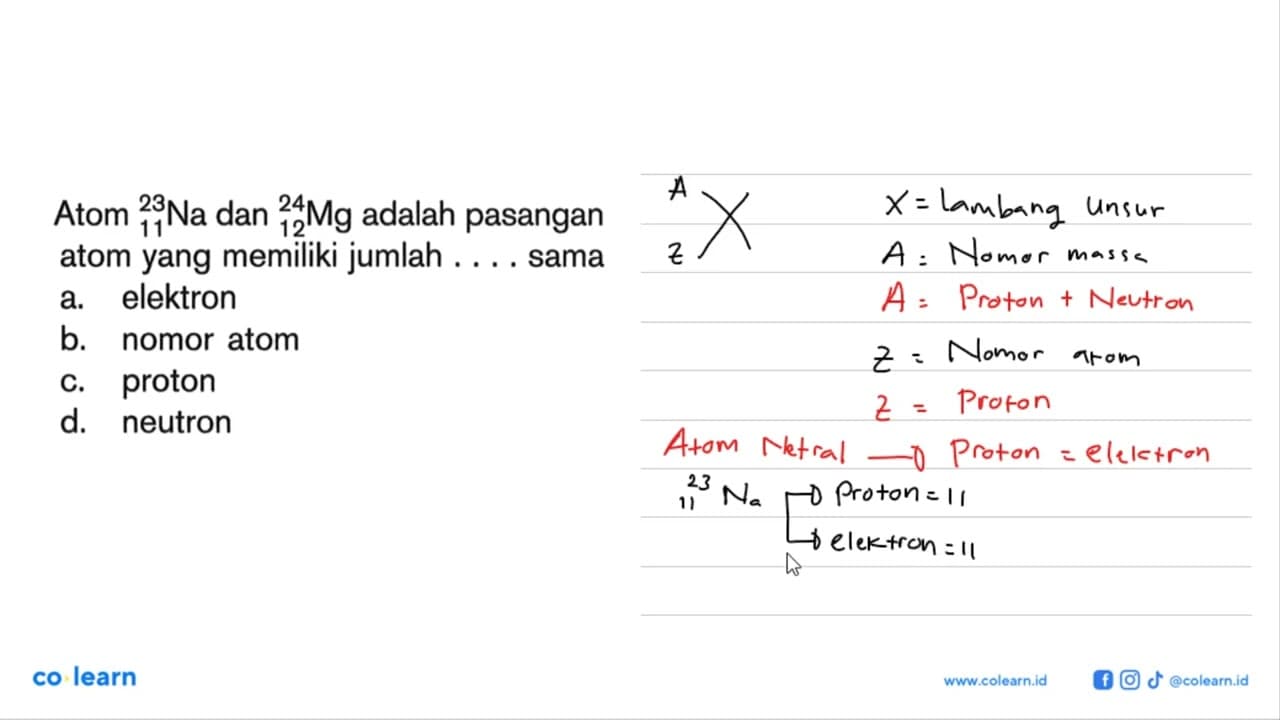 Atom ²³₁₁Na dan ²⁴₁₂Mg adalah pasangan
atom yang memiliki jumlah . . . . sama
a. elektron
b. nomor atom
c. proton
d. neutron
A
Z X
X = Lambang Unsur
A = Nomor massa
A = Proton + Neutron
Z = Nomor atom
Z = Proton
Atom Netral → Proton = elektron
²³₁₁Na → Proton = 11
→ elektron = 11
co learn
www.colearn.id @colearn.id